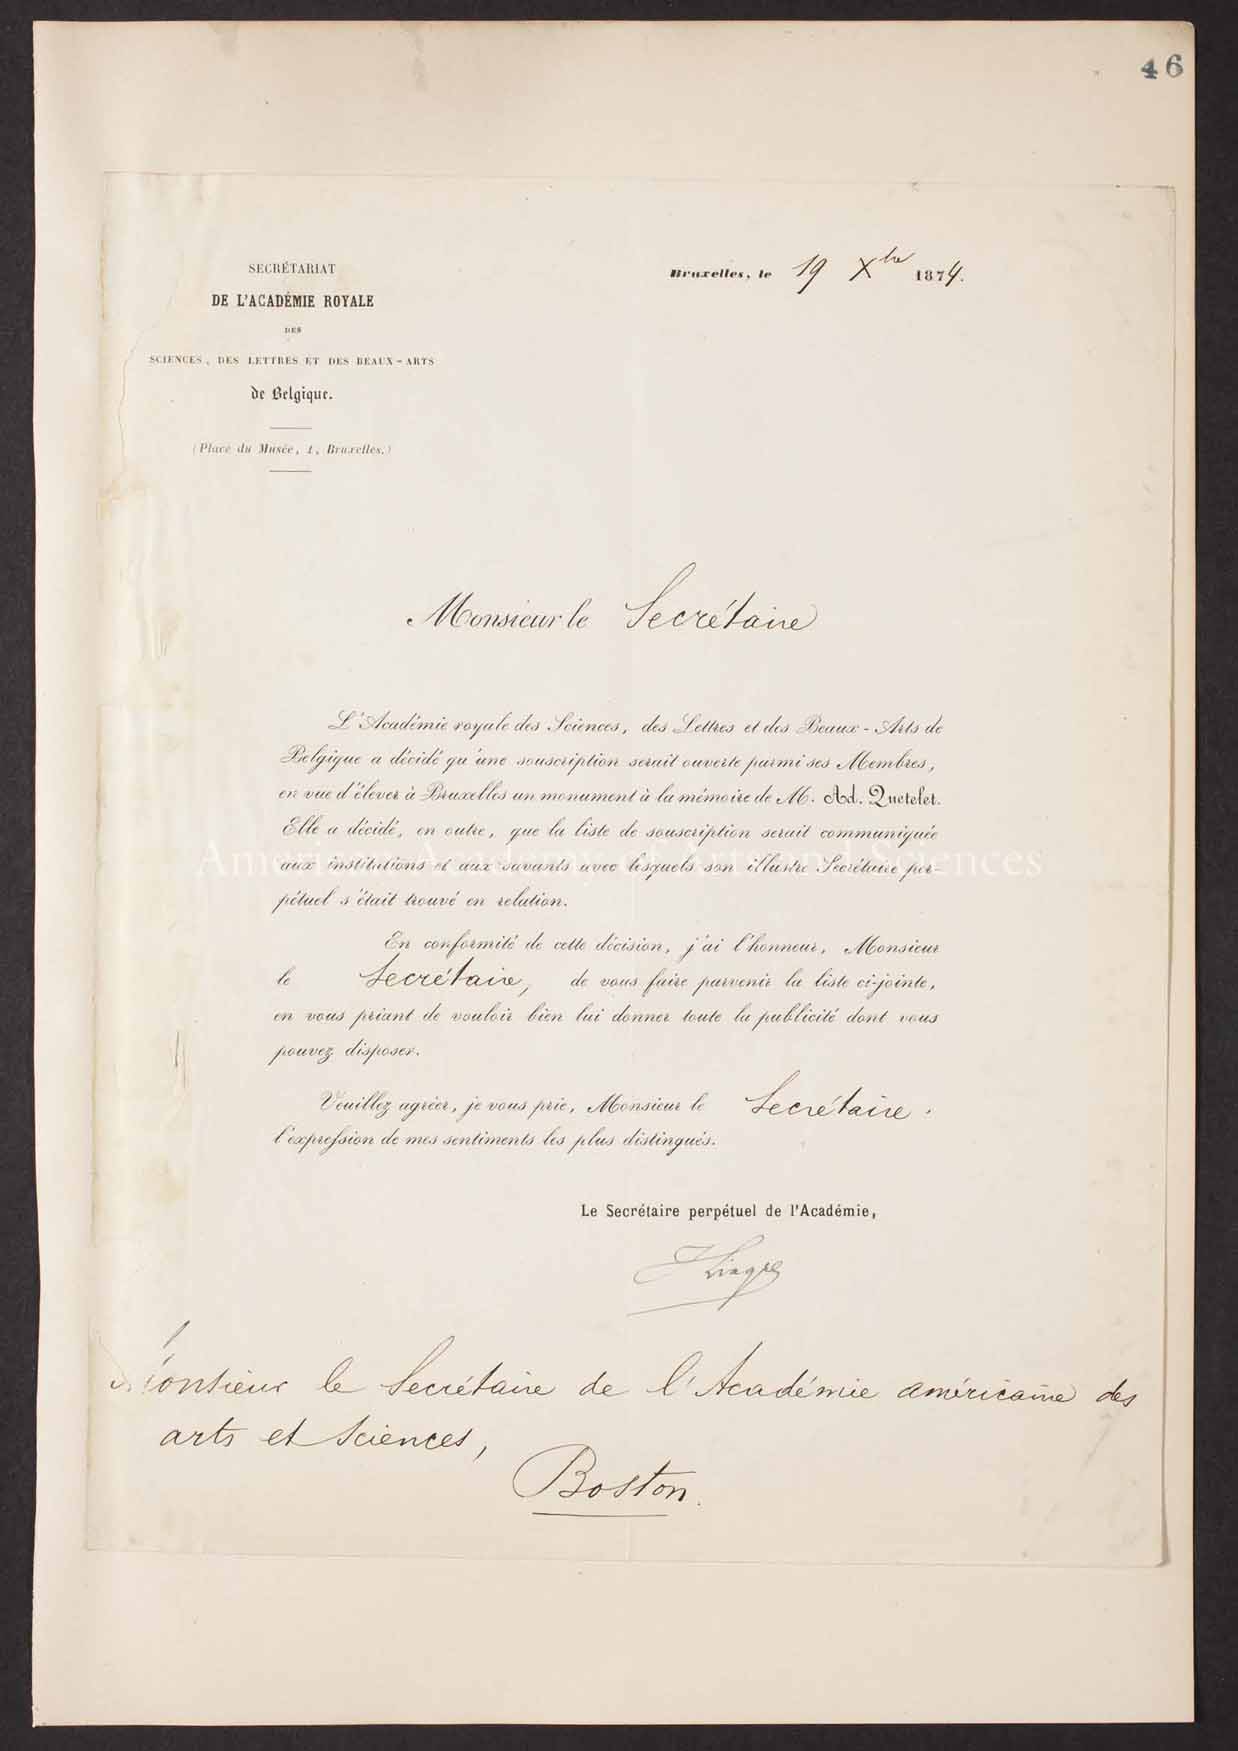 46
SECRÉTARIAT
DE L'ACADÉMIE ROYALE
DES
SCIENCES, DES LETTRES ET DES BEAUX-ARTS
de Belgique.
(Place du Musée, 1, Bruxelles.)
Bruxelles, le 19 Xbre 1874.
Monsieur le Secrétaire
L'Académie royale des Sciences, des Lettres et des Beaux-Arts de
Belgique a décidé qu'une souscription serait ouverte parmi ses Membres,
en vue d'élever à Bruxelles un monument à la mémoire de M. Ad. Quetelet.
Elle a décidé, en outre, que la liste de souscription serait communiquée
aux institutions et aux savants avec lesquels son illustre Secrétaire per-
pétuel s'était trouvé en relation.
American Academy of Arts and Sciences
En conformité de cette décision, j'ai l'honneur, Monsieur
le Secrétaire, de vous faire parvenir la liste ci-jointe,
en vous priant de vouloir bien lui donner toute la publicité dont vous
pouvez disposer.
Veuillez agréer, je vous prie, Monsieur le Secrétaire,
l'expression de mes sentiments les plus distingués.
Le Secrétaire perpétuel de l'Académie,
J Liagre
Monsieur le Secrétaire de l'Académie américaine des
arts et Sciences,
Boston.